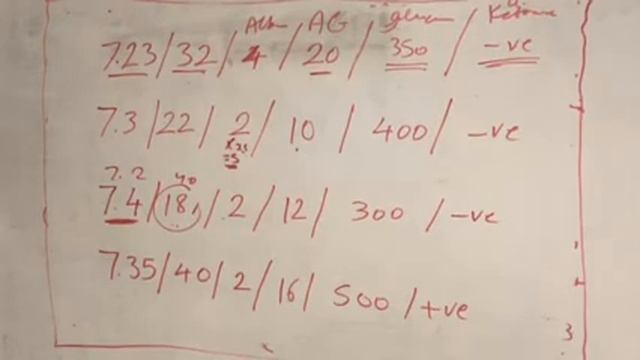 Alb AG gluc Ketone
7.23/32/4/20/350/-ve
7.3/22/2/10/400/-ve
x2.5
=5
7.2 40
7.4/18/2/12/300/-ve
7.35/40/2/16/500/+ve
3